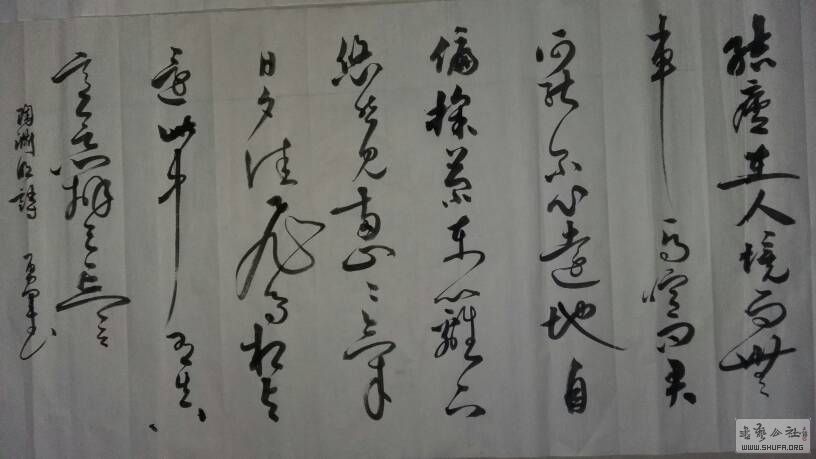 結廬在人境而無
車馬喧問君
何能尔心遠地自
偏採菊東籬下
悠然見南山〻氣
日夕佳飛鳥相与
還此中有真
意欲辨已忘言
陶渊明詩
书艺公社
WWW.SHUFA.ORG